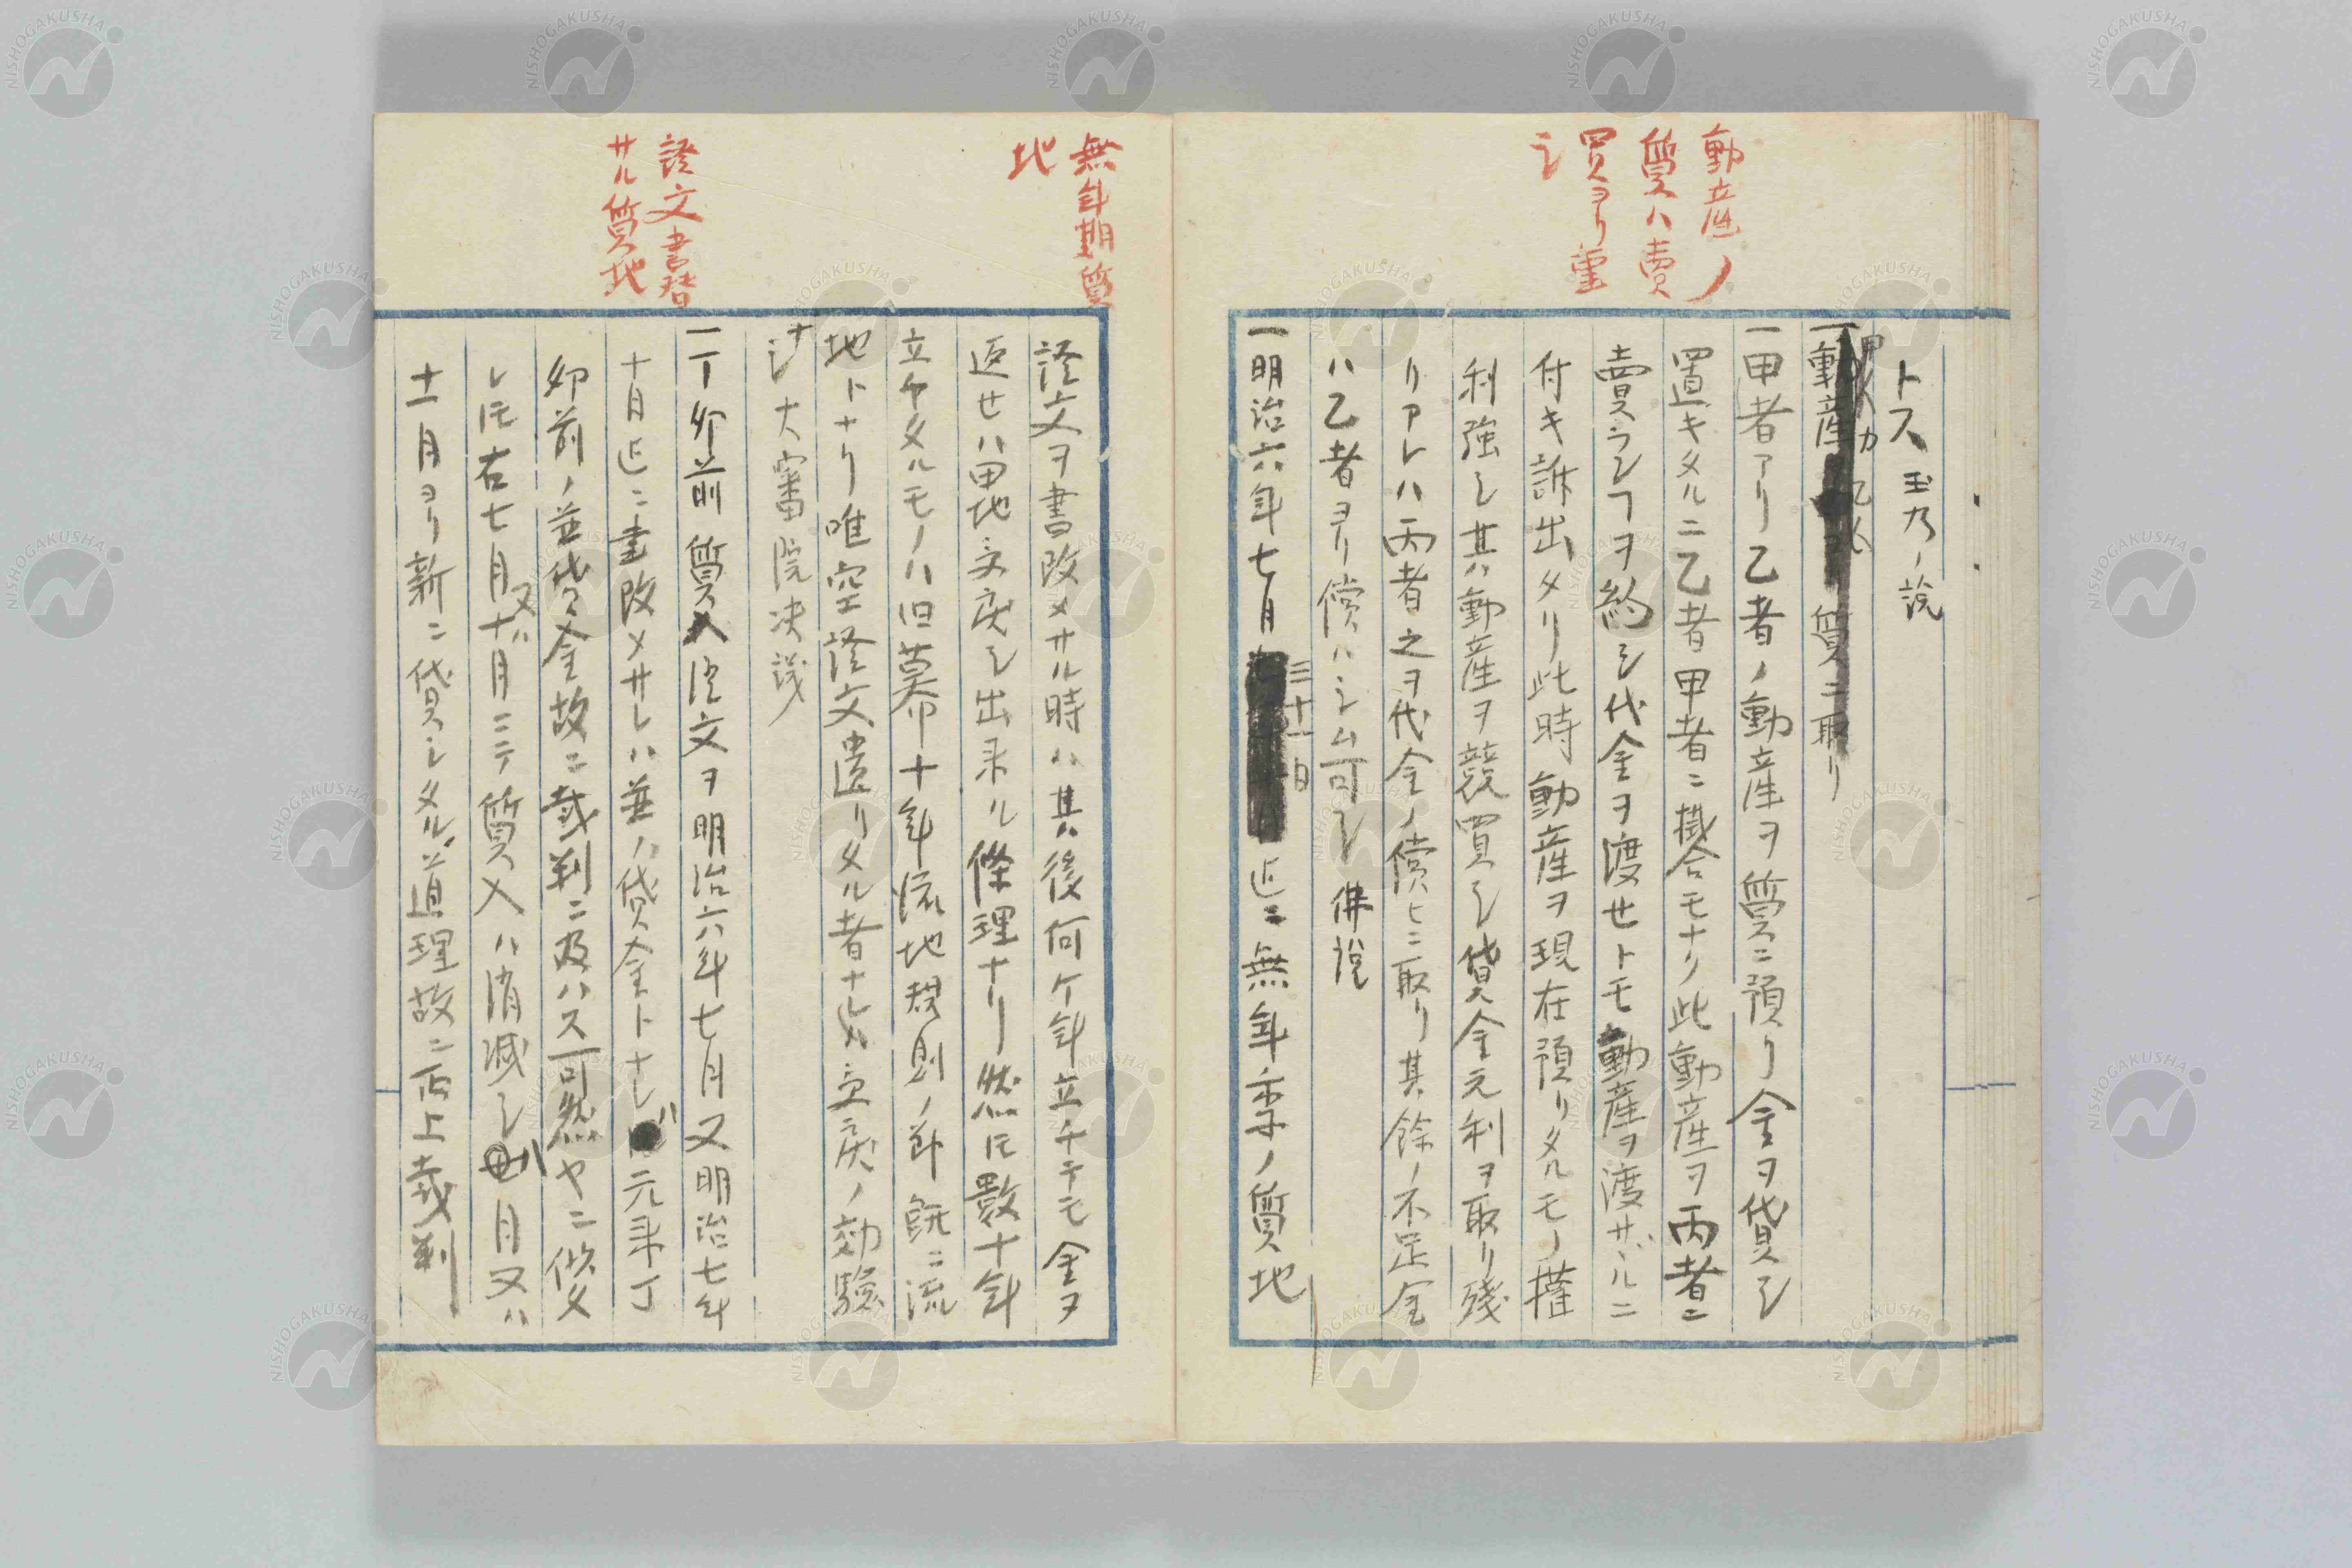 動産ノ
質ハ賣
買ヨリ重
シ
トス 玉乃ノ説
一動産 質ニ取リ
一甲者アリ乙者ノ動産ヲ質ニ預リ金ヲ貸シ
置キタルニ乙者甲者ニ掛合モナク此動産ヲ丙者ニ
賣ラレヿヲ約シ代金ヲ渡セトモ動産ヲ渡サヾルニ
付キ訴出タリ此時動産ヲ現在預リタルモノ権
利強シ其ハ動産ヲ競買シ貸金元利ヲ取リ残
リアレハ丙者之ヲ代金ノ償ヒニ取リ其餘ノ不足金
ハ乙者ヨリ償ハシム可シ 佛説
一明治六年七月三十一日迄ニ無年季ノ質地
無年期質
地
證文ヲ書改メサル時ハ其後何ケ年立チテモ金ヲ
返セハ田地ヲ戻シ出来ル條理ナリ然𪜈數十年
立タルモノハ旧幕中十年流地規則ノ節既ニ流
地トナリ唯空證文遺リタル者ナレハ立戻ノ効驗
ナシ 大審院決議
證文書替
サル質地
一丁卯前質入証文ヲ明治六年七月又明治七年
十月迄ニ書改メサレハ並ノ貸金トナレバ元来丁
卯前ノ並貸金故ニ裁判ニ及ハス可然ヤニ候
レ𪜈右七月又ハ十月ニテ質入ハ消滅シ 月又ハ
十一月ヨリ新ニ貸シタル道理故ニ取上裁判